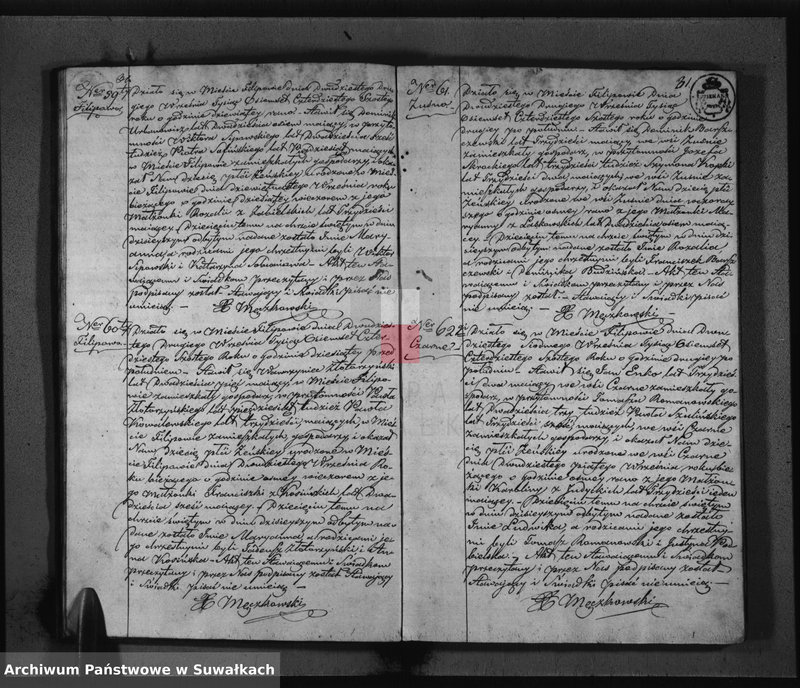 30.
Nro 59
Filipowo
Działo się w Mieście Filipowie dnia Dwudziestego Dru-
giego Września Tysiąc Osiemset Czterdziestego Szóstego
roku o godzinie dziewiątej rano. Stawił się Dominik
lat Dwadzieścia osiem mający w przyto-
mności Wiktora lat Dwadzieścia sześć
tudzież Piotra lat Pięćdziesiąt mających
w Mieście Filipowie zamieszkałych gospodarzy i oka-
zał Nam dziecię płci żeńskiej urodzone w Mieś-
cie Filipowie dnia dziewiętnastego Września roku
bieżącego o godzinie dziesiątej wieczorem z jego
Małżonki Rozalii z lat Trzydzieści
mającej. Dziecięciu temu na chrzcie świętym w dniu
dzisiejszym odbytym nadane zostało Imie Mary-
anna a rodzicami jego chrzestnymi byli Wiktor
i Katarzyna Akt ten Sta-
wiającemu i Świadkom przeczytany i przez Nas
podpisany został Stawający i Świadki pisać nie
umieją
X Męczkowski
Nro 60
Filipowo
Działo się w Mieście Filipowie dnia Dwudzie-
stego Drugiego Września Tysiąc Osiemset Czter-
dziestego Szóstego Roku o godzinie dziesiątej przed
południem. Stawił się Wawrzyniec Złotorzyński
lat Dwadzieścia mający w Mieście Filipo-
wie zamieszkały gospodarz, w przytomności Pawła
Złotorzyńskiego lat pięćdziesiąt tudzież Pawła
Kowalewskiego lat Trzydzieści mających, w Mieś-
cie Filipowie zamieszkałych gospodarzy i okazał
Nam dziecię płci żeńskiej urodzone w Mieś-
cie Filipowie dnia Dwudziestego Września Ro-
ku bieżącego o godzinie ósmej wieczorem z je-
go Małżonki Franciszki z Kosińskich lat Dwa-
dzieścia sześć mającej. Dziecięciu temu na
chrzcie świętym w dniu dzisiejszym odbytym na-
dane zostało Imie Maryanna, a rodzicami je-
go chrzestnymi byli Tadeusz Złotorzyński i An-
na Kosińska. Akt ten Stawającemu i Świadkom
przeczytany i przez Nas podpisany został Stawający
i Świadki pisać nie umieją
X Męczkowski
31
Nro 61.
Zusno.
Działo się w Mieście Filipowie Dnia
Dwudziestego Drugiego Września Tysiąc
Osiemset Czterdziestego Szóstego roku o godzinie
drugiej po południu. Stawił się Dominik
lat Trzydzieści mający we wsi Zusnie
zamieszkały gospodarz, w przytomności Józefa
lat Trzydzieści tudzież Szymona
lat Trzydzieści dwa mających, we wsi Zusnie za-
mieszkałych gospodarzy, i okazał Nam dziecię płci
żeńskiej urodzone we wsi Zusnie dnia wczoraj-
szego o godzinie ósmej rano z jego Małżonki Ma-
ryanny z lat Dwadzieścia osiem mają-
cej. Dziecięciu temu na chrzcie świętym w dniu dzi-
siejszym odbytym nadane zostało Imie Rozalia
a rodzicami jego chrzestnymi byli Franciszek
i Dominika Budzińska. Akt ten Sta-
wiającemu i Świadkom przeczytany i przez Nas
podpisany został. Stawający i Świadki pisać
nie umieją
X Męczkowski
Nro 62.
Czarne
Działo się w Mieście Filipowie dnia Dwu-
dziestego Siódmego Września Tysiąc Osiemset
Czterdziestego Szóstego Roku o godzinie drugiej po
południu. Stawił się Jan lat Trzydzieści
dwa mający we wsi Czarne zamieszkały go-
spodarz, w przytomności Tomasza Romanowskiego
lat Dwadzieścia trzy tudzież Pawła
lat Trzydzieści sześć mających, we wsi Czarne
zamieszkałych gospodarzy, i okazał Nam dzie-
cię płci żeńskiej urodzone we wsi Czarne
dnia Dwudziestego piątego Września roku bież-
ącego o godzinie ósmej rano z jego Małżon-
ki Karoliny z lat Trzydzieści jeden
mającej. Dziecięciu temu na chrzcie świętym
w dniu dzisiejszym odbytym nadane zostało
Imie Ludwika, a rodzicami jego chrzestny-
mi byli Tomasz Romanowski i Justyna
Akt ten Stawającemu i Świadkom
przeczytany i przez Nas podpisany został
Stawający i Świadki pisać nie umieją
X Męczkowski
Archiwum Państwowe w Suwałkach